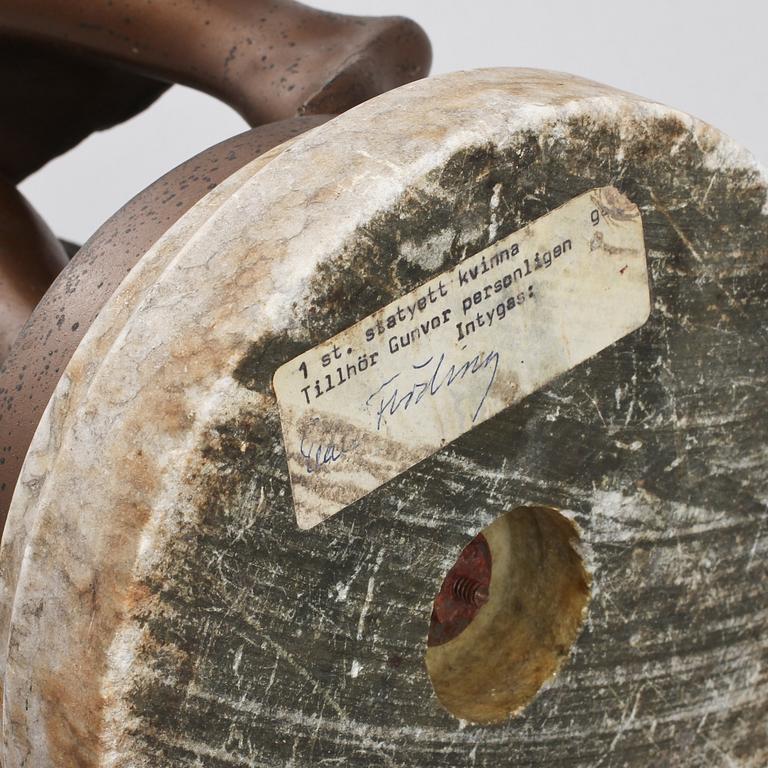 1 st. statyett kvinna
Tillhör Gunvor personligen
Intygas:
Flöding